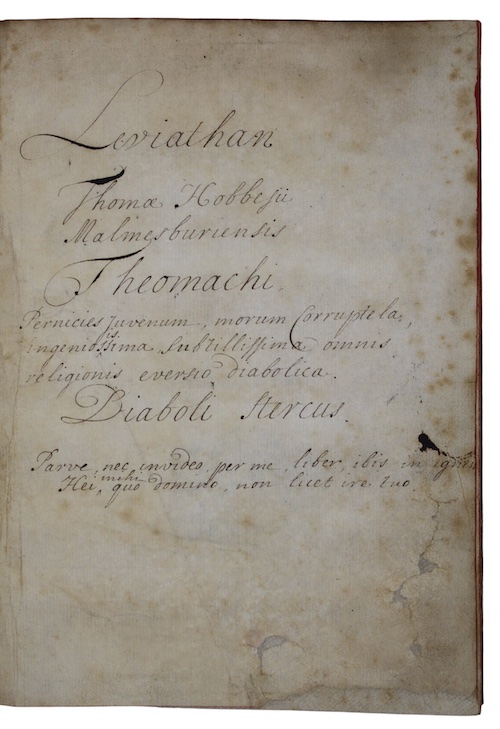 Leviathan
Thomæ Hobbesii
Malmesburiensis
Theomachi.
Pernicies Juvenum, morum Corruptela,
ingeniosissima subtillissima omnis
religionis eversio diabolica.
Diaboli stercus.
Parve, nec invideo, per me, liber, ibis in ignem
Hei mihi, quo domino, non licet ire tuo